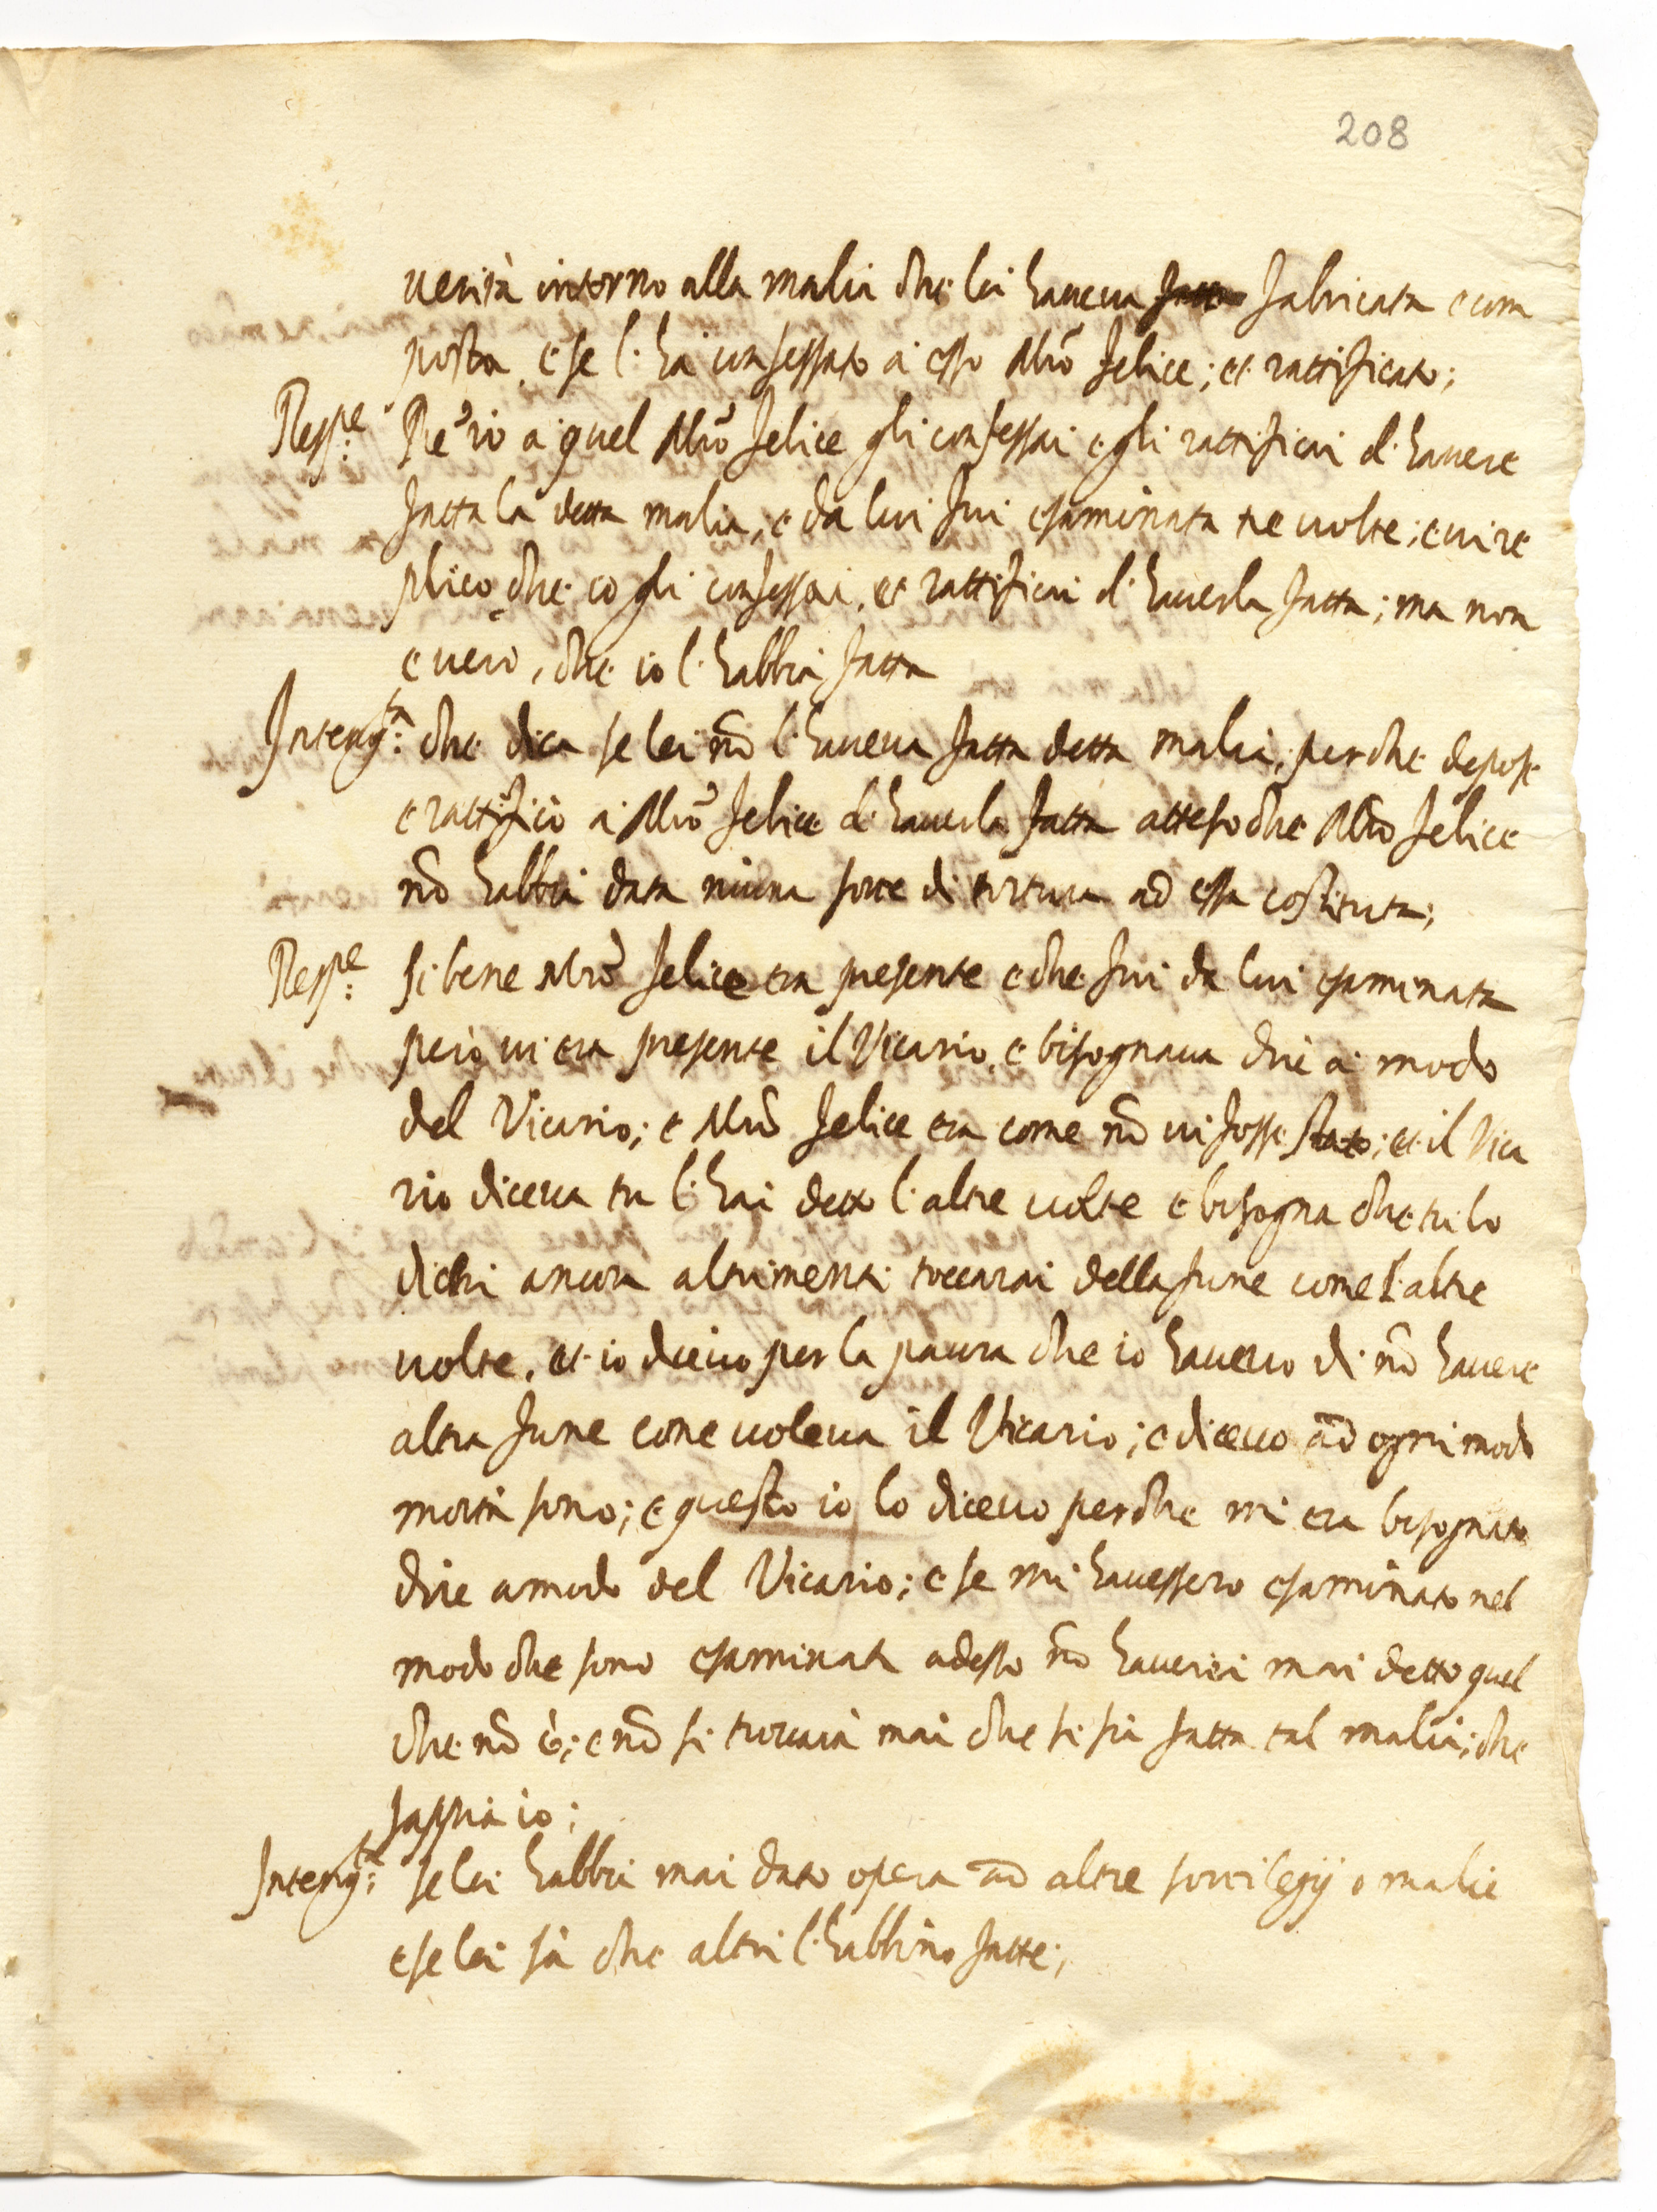 208
uerità intorno alla malia che lei haueua fatto fabricata e com
posta, e se l'hà confessato à esso Mro Felice; et rattificato;
Resp.e Pe'rò à quel Mro Felice gli confessai e gli rattificai d'hauere
fatta la detta malia, e da lui fui esaminata tre uolte; e ui re
plico che io gli confessai, et rattificai d'hauerla fatta; ma non
è uero, che io l'habbia fatta
Interrg.ta che dica se lei nō l'haueua fatta detta malia, perche depose
e rattificò à Mro Felice d'hauerla fatta atteso che Mro Felice
nō habbia data niuna sorte di tortura ad essa costituta;
Resp.e si bene Mro Felice era presente e che fui da lui esaminata
però ui era presente il Vicario, e bisognaua dire à modo
del Vicario; e Mro Felice era come nō ui fosse stato; et il Vica
rio diceua tu l'hai detto l'altre uolte e bisogna che tu lo
dichi ancora altrimenti toccarai della fune come l'altre
uolte, et io diceuo per la paura che io haueuo di nō hauere
altra fune come uoleua il Vicario; e diceuo ad ogni modo
morta sono; e questo io lo diceuo perche mi era bisognato
dire a modo del Vicario; e se mi hauessero esaminato nel
modo che sono esaminata adesso nō hauerei mai detto quel
che nō è; e nō si trouarà mai che si sia fatta tal malia; che
sappia io;
Interrg.ta se lei habbia mai dato opera ad altre sortilegij o malie
e se lei sà che altri l'habbino fatte;